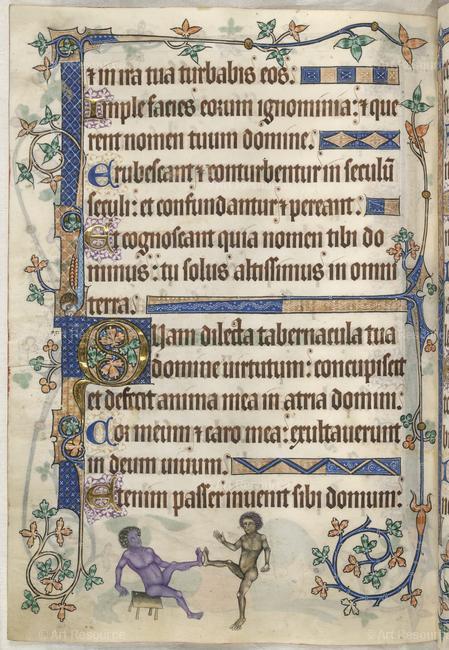 ⁊ in ira tua turbabis eos.
Imple facies eorum ignominia: ⁊ que
rent nomen tuum domine.
Erubescant ⁊ conturbentur in seculū
seculi: et confundantur ⁊ pereant.
Et cognoscant quia nomen tibi do
minus: tu solus altissimus in omni
terra.
Quam dilecta tabernacula tua
domine uirtutum: concupiscit
et defecit anima mea in atria domini.
Cor meum ⁊ caro mea: exultauerunt
in deum uiuum.
Etenim passer inuenit sibi domum:
© Art Resource
© Art Resource